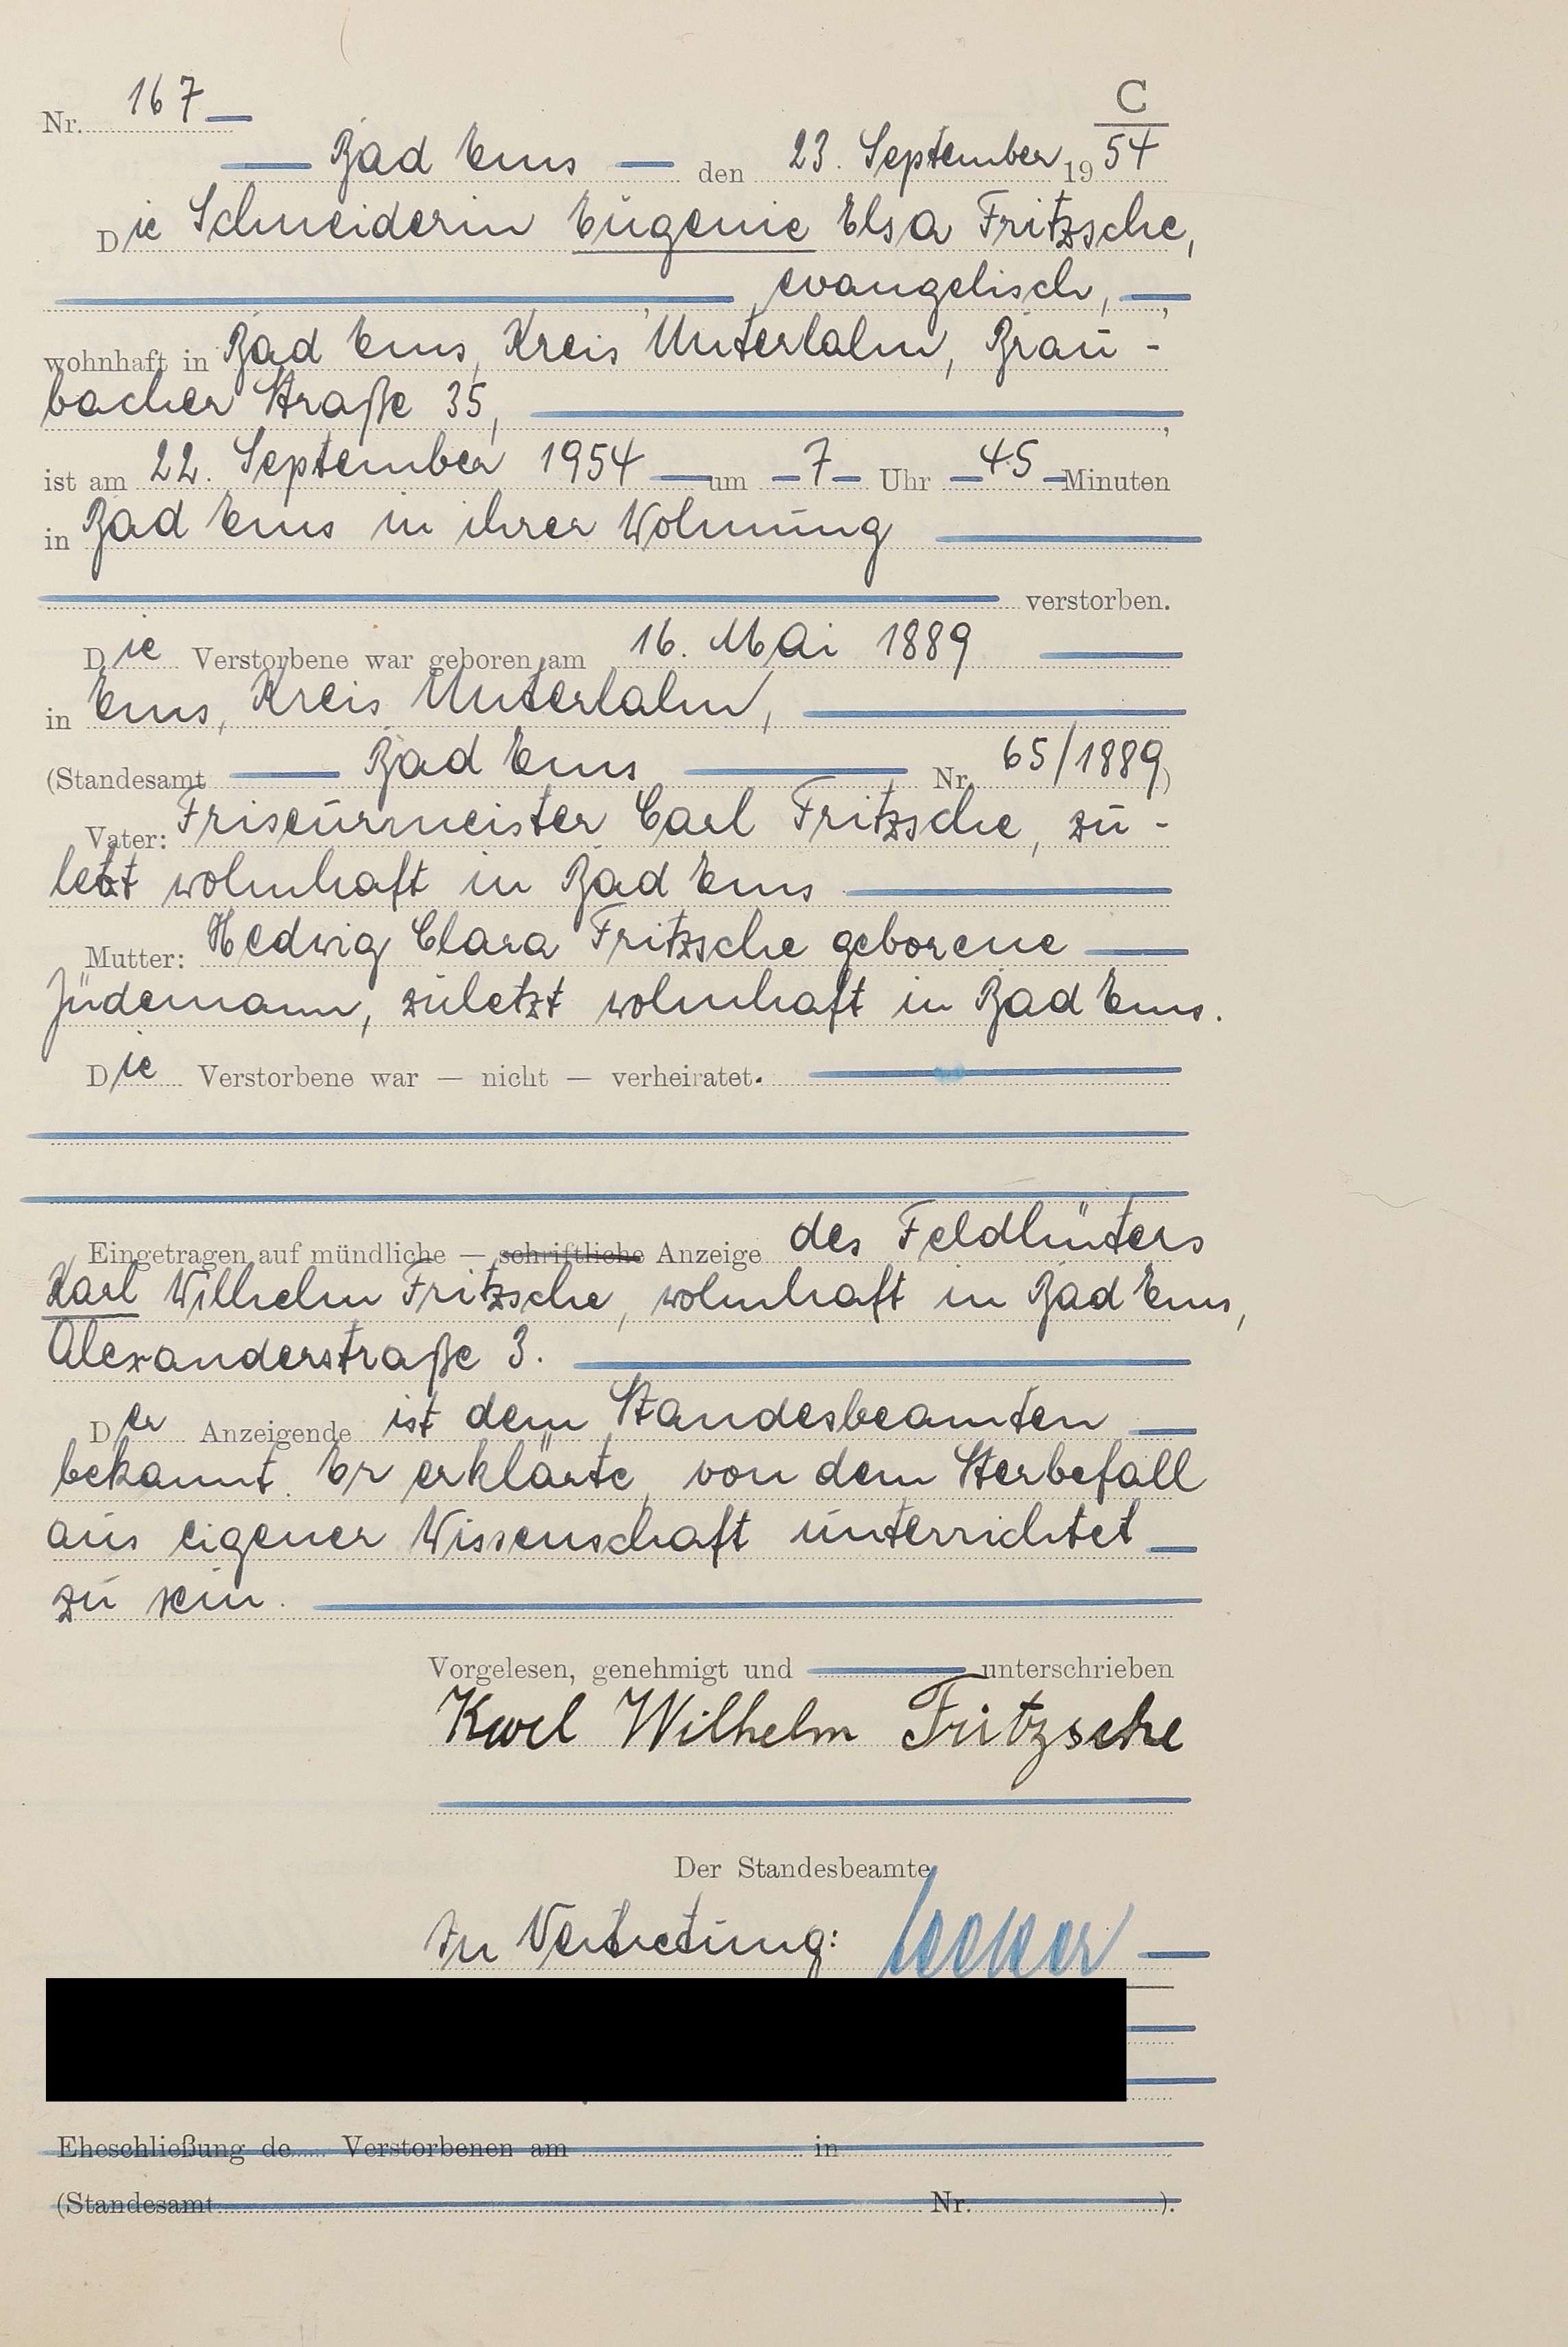 C
Nr. 167
Bad Ems den 23. September 1954
Die Schneiderin Eugenie Elsa Fritzsche,
evangelisch,
wohnhaft in Bad Ems, Kreis Unterlahn, Brau-
bacher Straße 35,
ist am 22. September 1954 um 7 Uhr 45 Minuten
in Bad Ems in ihrer Wohnung
verstorben.
Die Verstorbene war geboren am 16. Mai 1889
in Ems, Kreis Unterlahn,
(Standesamt Bad Ems Nr. 65/1889)
Vater: Friseurmeister Carl Fritzsche, zu-
letzt wohnhaft in Bad Ems
Mutter: Hedwig Clara Fritzsche geborene
Jüdemann, zuletzt wohnhaft in Bad Ems.
Die Verstorbene war — nicht — verheiratet.
Eingetragen auf mündliche — schriftliche Anzeige des Feldhüters
Karl Wilhelm Fritzsche, wohnhaft in Bad Ems,
Alexanderstraße 3.
Der Anzeigende ist dem Standesbeamten
bekannt. Er erklärte, von dem Sterbefall
aus eigener Wissenschaft unterrichtet
zu sein.
Vorgelesen, genehmigt und unterschrieben
Karl Wilhelm Fritzsche
Der Standesbeamte
In Vertretung:
Eheschließung de Verstorbenen am in
(Standesamt Nr. ).